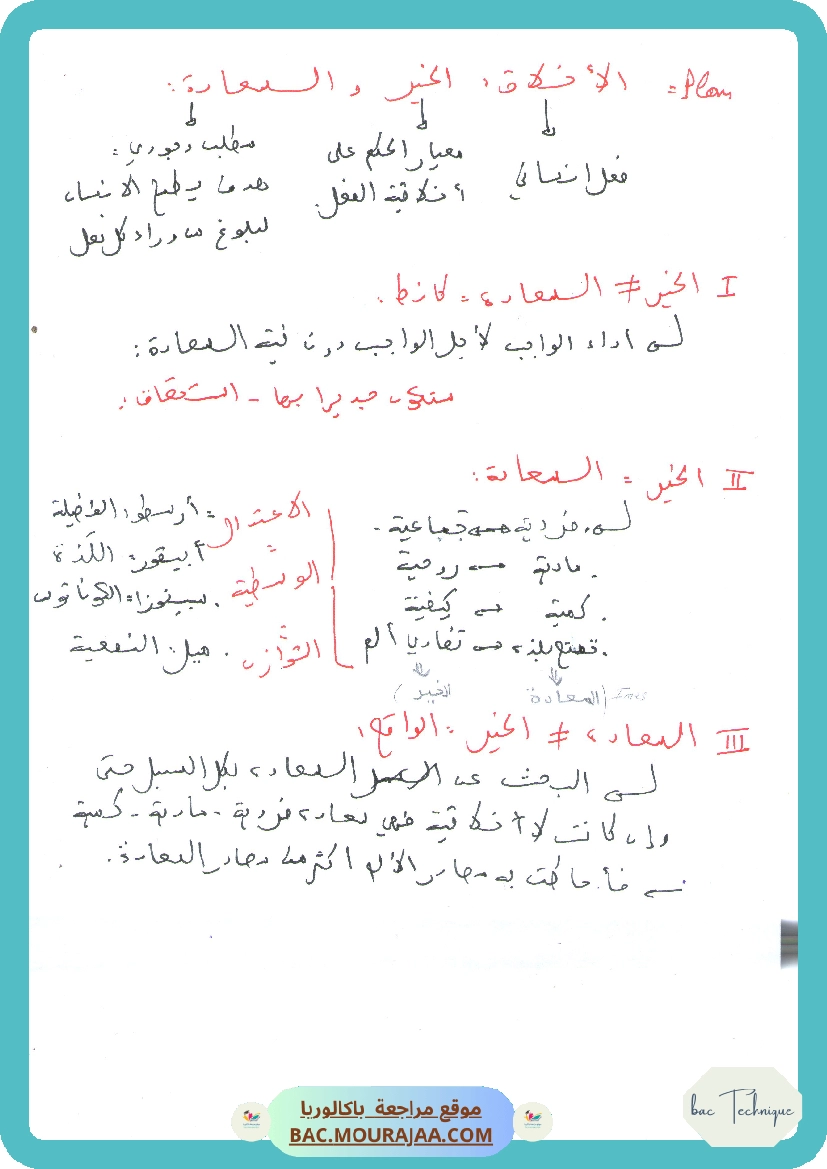 Plan: الأخلاق: الخير و السعادة:
فعل إنساني
معيار الحكم على أخلاقية الفعل.
مطلب وجودي:
هدف يطمح الانسان
لبلوغه من وراء كل فعل
I الخير ≠ السعادة: كانط.
أداء الواجب لأجل الواجب دون نية السعادة:
ستكون جديرا بها - استحقاق:
II الخير = السعادة:
فردية جماعية.
. مادية روحية
. كمية كيفية
. تمتع بلذة تفادي ألم
السعادة الخير
الاعتدال
الوسطية
التوازن
أرسطو: الفضيلة
أبيقور: اللذة
. سبينوزا: الكوناتوس
. ميل: النفعية
III السعادة ≠ الخير = الواقع:
البحث عن السعادة بكل السبل حتى
وإن كانت لا أخلاقية فهي سعادة فردية - مادية - كمية
به مصادر الألم أكثر من مصادر السعادة.
bac Technique
موقع مراجعة باكالوريا
BAC.MOURAJAA.COM